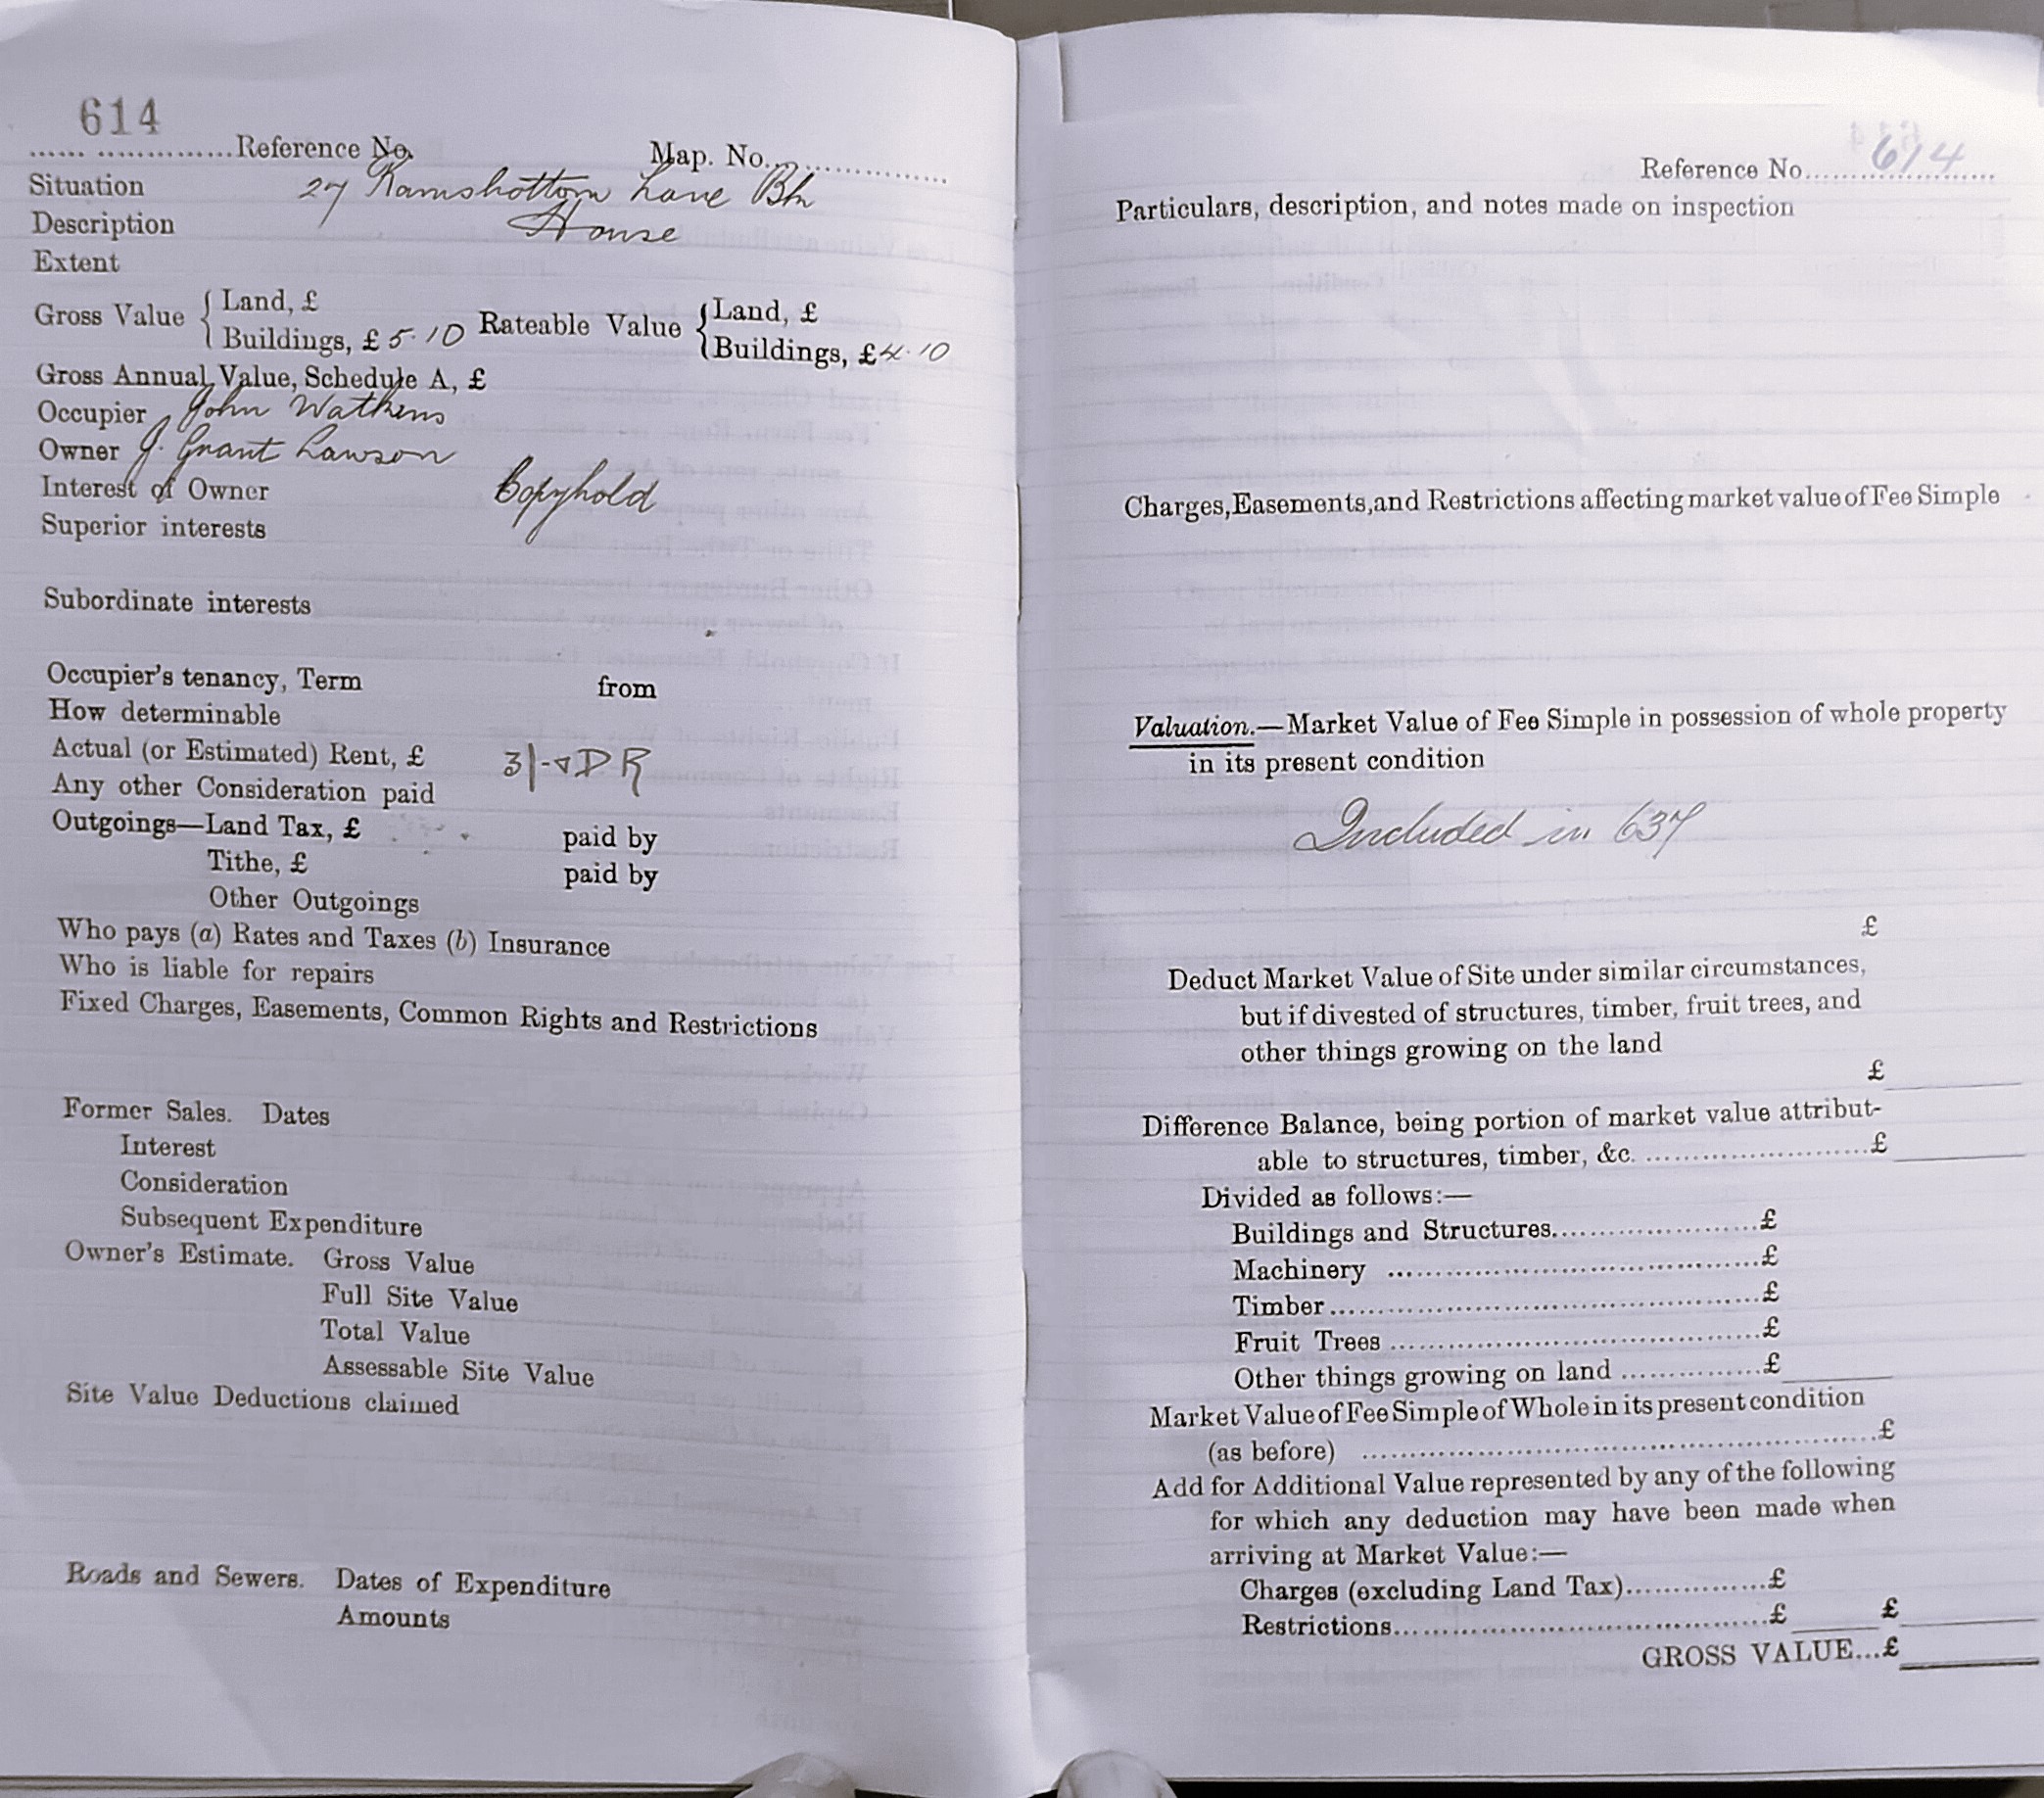 614
...... ..............Reference No.
Map. No..................
Situation 27 Ramsbottom Lane Bhn
Description House
Extent
Gross Value { Land, £
Buildings, £ 5.10
Rateable Value { Land, £
Buildings, £ 4.10
Gross Annual Value, Schedule A, £
Occupier John Watkins
Owner J. Grant Lawson
Interest of Owner Copyhold
Superior interests
Subordinate interests
Occupier's tenancy, Term from
How determinable
Actual (or Estimated) Rent, £ 3/-
Any other Consideration paid
Outgoings—Land Tax, £ paid by
Tithe, £ paid by
Other Outgoings
Who pays (a) Rates and Taxes (b) Insurance
Who is liable for repairs
Fixed Charges, Easements, Common Rights and Restrictions
Former Sales. Dates
Interest
Consideration
Subsequent Expenditure
Owner's Estimate. Gross Value
Full Site Value
Total Value
Assessable Site Value
Site Value Deductions claimed
Roads and Sewers. Dates of Expenditure
Amounts
Reference No. 614
Particulars, description, and notes made on inspection
Charges, Easements, and Restrictions affecting market value of Fee Simple
Valuation.—Market Value of Fee Simple in possession of whole property
in its present condition
Included in 637
£
Deduct Market Value of Site under similar circumstances,
but if divested of structures, timber, fruit trees, and
other things growing on the land
£
Difference Balance, being portion of market value attribut-
able to structures, timber, &c. ........................£
Divided as follows:—
Buildings and Structures.......................£
Machinery ......................................£
Timber............................................£
Fruit Trees ......................................£
Other things growing on land ...............£
Market Value of Fee Simple of Whole in its present condition
(as before) ......................................................£
Add for Additional Value represented by any of the following
for which any deduction may have been made when
arriving at Market Value:—
Charges (excluding Land Tax)...............£
Restrictions.......................................£ £
GROSS VALUE...£